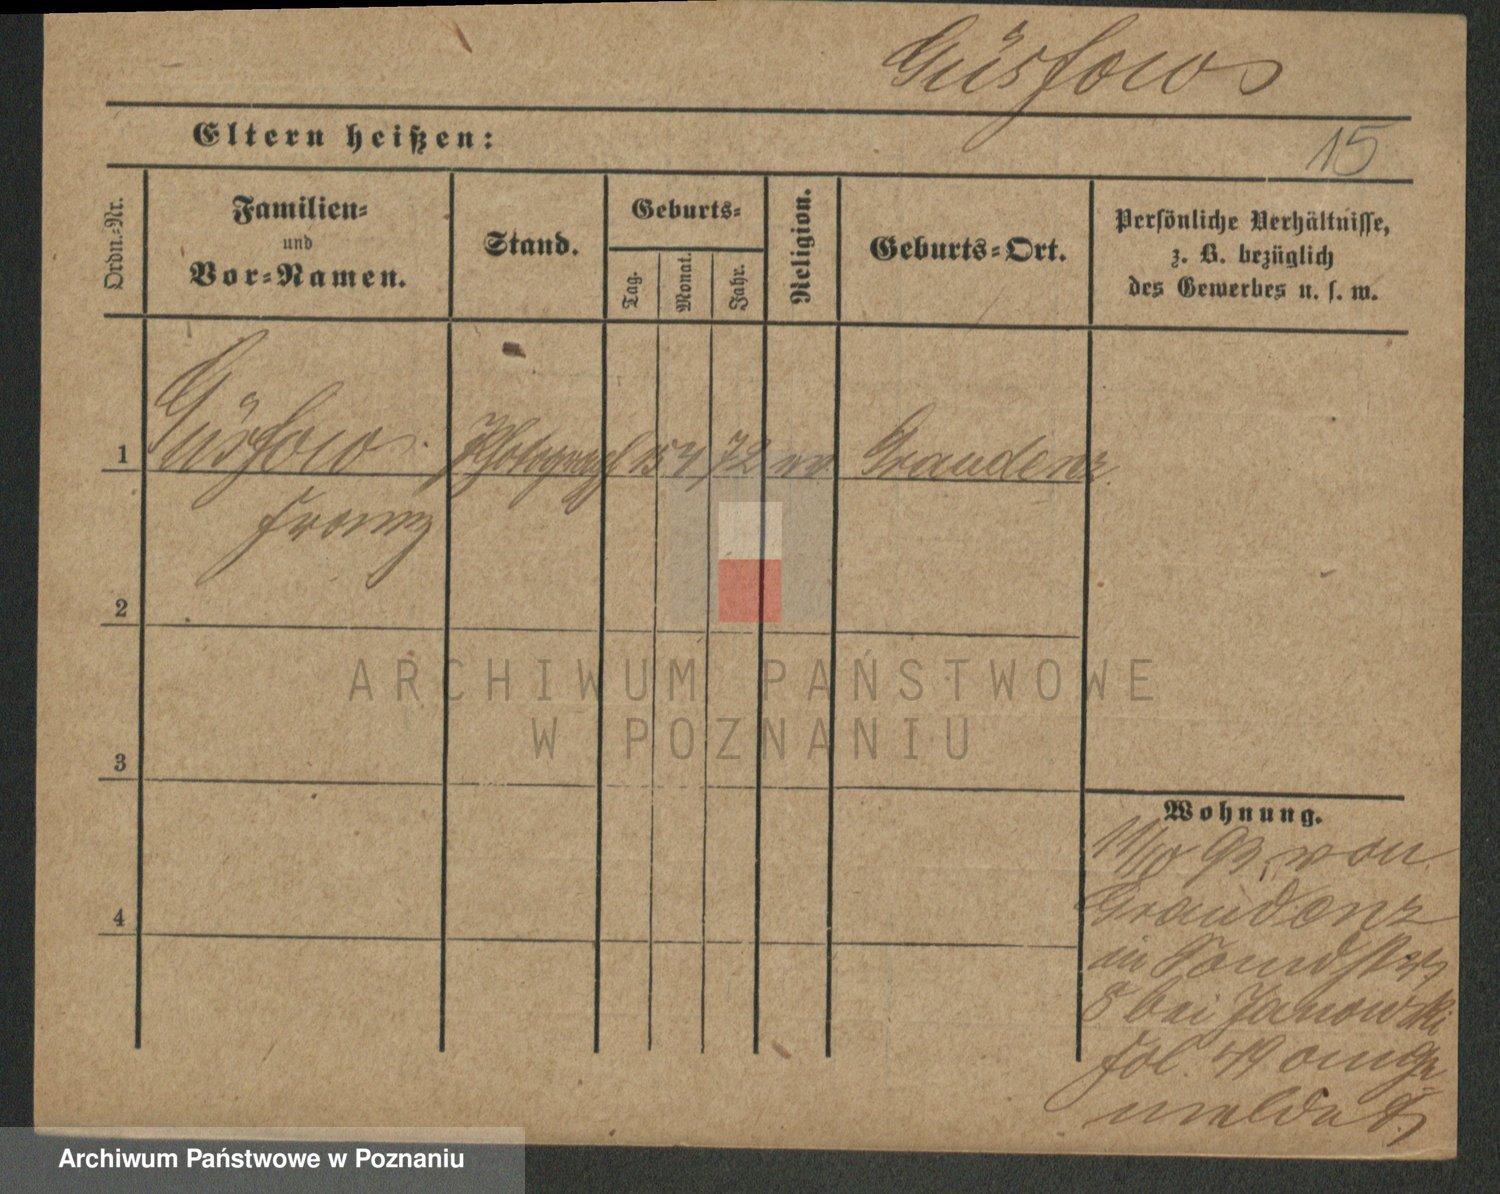 Güsfow
15
Eltern heißen:
Ordn.-Nr.
Familien-
und
Vor-Namen.
Stand.
Geburts-
Tag.
Monat.
Jahr.
Religion.
Geburts-Ort.
Persönliche Verhältnisse,
z. B. bezüglich
des Gewerbes u. s. w.
1 Güsfow Photograph 15 4 72 ev Graudenz
Franz
2
ARCHIWUM PAŃSTWOWE
W POZNANIU
3
Wohnung.
11/10 93 von
Graudenz
in
4
8 bei Janowski
fol. 49 ange-
meldet
Archiwum Państwowe w Poznaniu